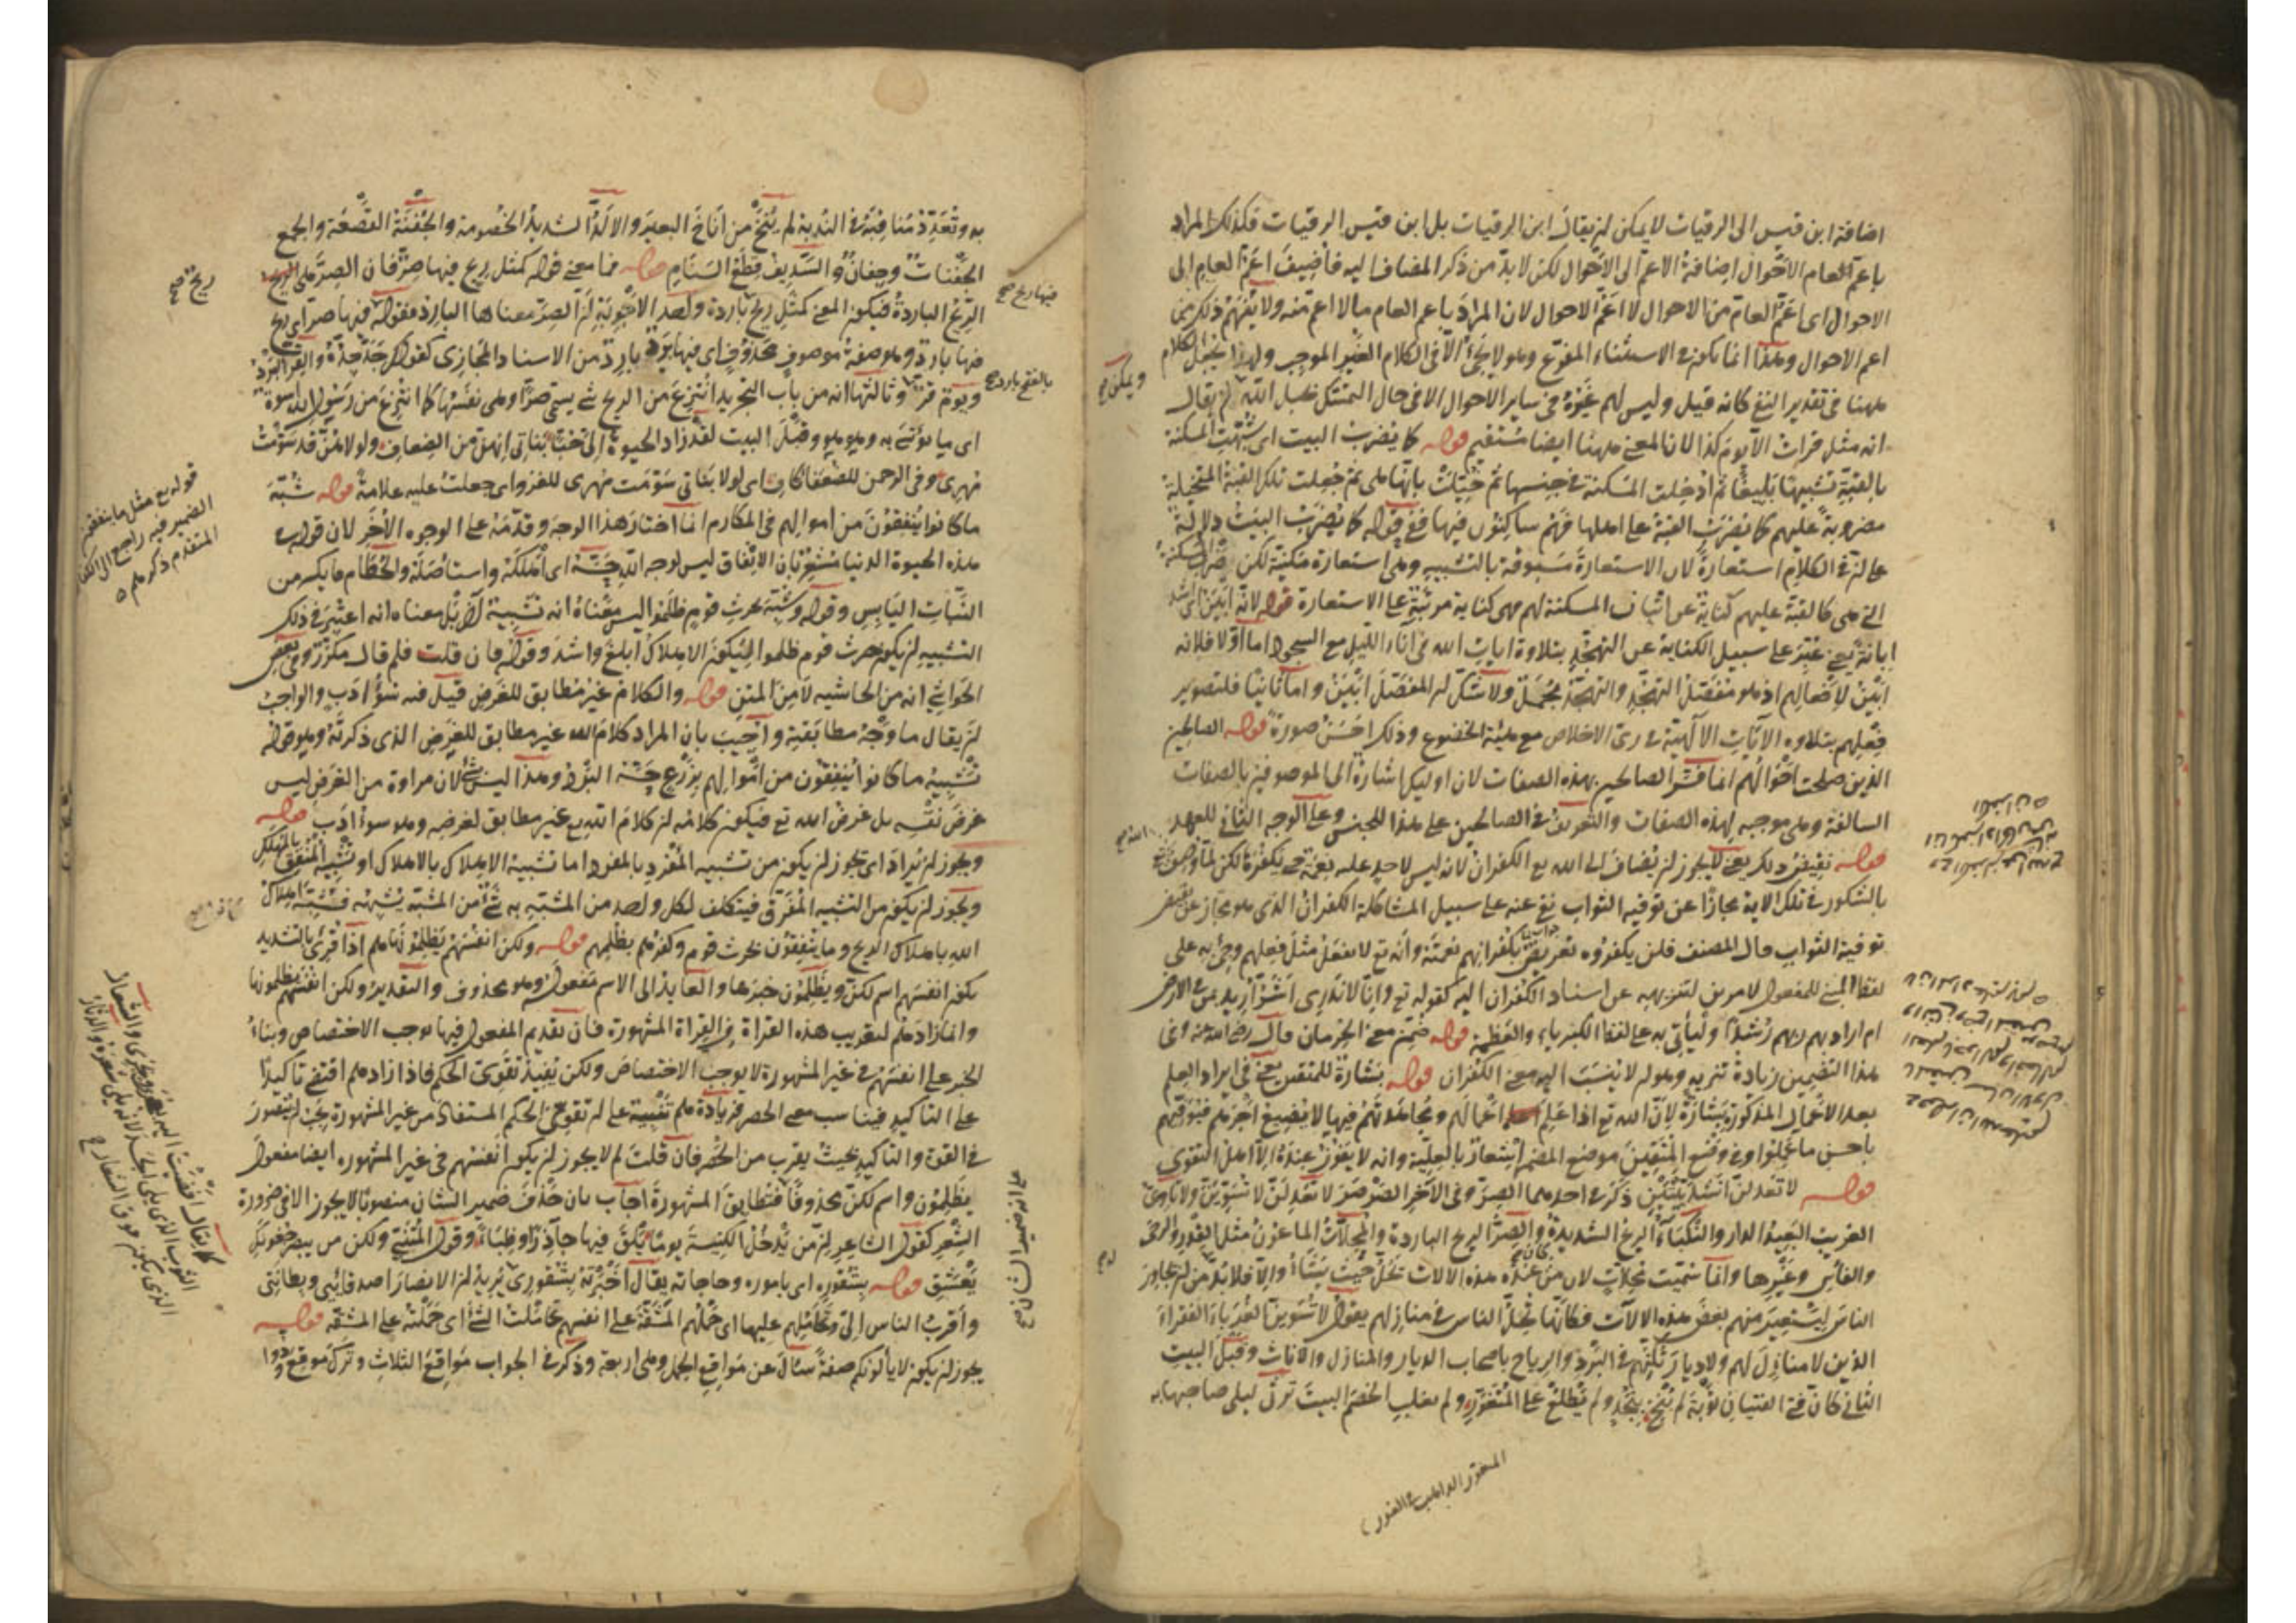 اضافة ابن قيس الى الرقيات لا يمكن لن يقال ابن الرقيات بل ابن قيس الرقيات فكذلك المراد
باعم العام الاحوال اضافة الاعم الى الاحوال لكن لا بد من ذكر المضاف اليه فاضيف اعم العام الى
الاحوال اى اعم العام من الاحوال لا اعم الاحوال لان المراد باعم العام ما لا اعم منه ولا يفهم ذلك من
اعم الاحوال وهذا انما يكون فى الاستثناء المفرغ وهو لا يجئ الا فى الكلام الغير الموجب ولهذا يجعل الكلام
ههنا فى تقدير النفى كانه قيل وليس لهم عزة فى ساير الاحوال الا فى حال التمسك بحبل الله
انه مثل قرات الا يوم كذا لان المعنى ههنا ايضا مستقيم قوله كما يضرب البيت اى شبهت المسكنة
بالقبة تشبيها بليغا ثم ادخلت المسكنة فى جنسها ثم خيلت بانها هى ثم جعلت تلك القبة المتخيلة
مضروبة عليهم كما يضرب القبة على اهلها فهم ساكنون فيها ففى قوله كما يضرب البيت دلالة
على ان فى الكلام استعارة لان الاستعارة مسبوقة بالتشبيه وهى استعارة مكنية لكن ضرب المسكنة
التى هى كالقبة عليهم كناية عن اثبات المسكنة لهم فهى كناية مرتبة على الاستعارة قوله لانه ابين
ابانة يعنى عبر على سبيل الكناية عن التهجد بتلاوة ايات الله فى اناء الليل مع السجود اما اولا فلانه
ابين لافعالهم اذ هو مفصل التهجد والتهجد مجمل ولا شك لن المفصل ابين واما ثانيا فلتصوير
فعلهم بتلاوة الايات الالهية فى زى الاخلاص مع هيئة الخضوع وذلك احسن صورة قوله الصالحين
الذين صلحت احوالهم انما فسر الصالحين بهذه الصفات لان اوليك اشارة الى الموصوفين بالصفات
السالفة وهى موجبه لهذه الصفات والتعريف فى الصالحين على هذا للجنس وعلى الوجه الثانى للعهد
قوله نقيض ذلك يعنى لا يجوز لن يضاف الى الله تع الكفران لانه ليس لاحد عليه نعمة حتى يكفره لكن لما وصف
بالشكور فى تلك الاية مجازا عن توفيه الثواب نفى عنه على سبيل المشاكلة الكفران الذى هو مجاز عن نقص
توفية الثواب قال المصنف فلن يكفروه تعريض بكفرانهم نعمته وانه تع لا يفعل مثل فعلهم وجئ به على
لفظ المبنى للمفعول لامرين لتنزيهه عن اسناد الكفران اليه كقوله تع وانا لا ندرى اشر اريد بمن فى الارض
ام اراد بهم ربهم رشدا وليأتى به على لفظ الكبرياء والعظمة قوله ضمن معنى الحرمان قال رضى الله عنه وفى
هذا التضمين زيادة تنزيه وهو لن لا ينسب اليه معنى الكفران قوله بشارة للمتقين يعنى فى ايراد العلم
بعد الاعمال المذكورة بشارة لان الله تع اذا علم اعمالهم ومجاهدتهم فيها لا يضيع اجرهم فيوفيهم
باحسن ما عملوا وفى وضع المتقين موضع المضمر اشعار بالعلية وانه لا يفوز عنده الا اهل التقوى
قوله لا تعدلن انشد بيتين ذكر فى احدهما الصر وفى الآخر الصرصر لا تعدلن لا تسوين
الغريب البعيد الدار والنكباء الريح الشديدة والصر الريح الباردة والمحلات الماعون مثل القدر والرحى
والفأس وغيرها وانما سميت محلات لان من عنده هذه الالات تحل حيث يشاء والا فلا بد من لن يجاور
الناس ليستعير منهم بعض هذه الالات فكانها تحل الناس فى منازلهم يقول لا تسوين الغرباء الفقراء
الذين لا منازل لهم ولا ديار فى البرد والرياح باصحاب الديار والمنازل والاثاث وقبل البيت
الثانى كان فتى الفتيان توبة لم ينخ بنجد ولم يطلع على المتغور ولم يغلب الخصم البيت ترثى ليلى صاحبها به
ويمكن صح
المتغور الذاهب فى الغور
به وتعدد مناقبه فى الندبة لم ينخ من اناخ البعير والالد الشديد الخصومة والجفنة القصعة والجمع
الجفنات وجفان والسديف قطع السنام قوله فما معنى قوله كمثل ريح فيها صر فان الصر هى الريح
الريح الباردة فيكون المعنى كمثل ريح باردة واحد الاجوبة لن الصر معناها البارد فقوله فيها صر اى ريح
فيها بارد وهو صفة موصوف محذوف اى فيها برد بارد من الاسناد المجازى كقولك جد جده والقر البرد
ويوم قر وثالثها انه من باب التجريد انتزع من الريح شئ يسمى صرا وهى نفسها كما انتزع من رسول الله اسوة
اى ما يؤتسى به وهو هو وقبل البيت لقد زاد الحيوة الى حبا بناتى انهن من الضعاف ولولا هن قد سومت
مهرى وفى الرحمن للضعفا كاف اى لولا بناتى سومت مهرى للغزو اى جعلت عليه علامة قوله شبه
ما كانوا ينفقون من اموالهم فى المكارم انما اختار هذا الوجه وقدمه على الوجوه الاخر لان قوله فى
هذه الحيوة الدنيا مشعر بان الانفاق ليس لوجه الله حسه اى اهلكه واستاصله والحطام ما يكسر من
النبات اليابس وقوله وشبه بحرث قوم ظلموا ليس معناه انه تشبيه آخر بل معناه انه اعتبر فى ذلك
التشبيه لن يكون حرث قوم ظلموا ليكون الاهلاك ابلغ واشد وقوله فان قلت فلم قال مكرر وفى بعض
الحواشى انه من الحاشيه لا من المتن قوله والكلام غير مطابق للغرض قيل فيه سوء ادب والواجب
لن يقال ما وجه مطابقته واجيب بان المراد كلام الله غير مطابق للغرض الذى ذكرته وهو قوله
تشبيه ما كانوا ينفقون من اموالهم بزرع حسه البرد وهذا ليس بشئ لان مراده من الغرض ليس
غرض نفسه بل غرض الله تع فيكون كلامه لن كلام الله تع غير مطابق لغرضه وهو سوء ادب قوله
ويجوز لن يراد اى يجوز لن يكون من تشبيه المفرد بالمفرد اما تشبيه الاهلاك بالاهلاك او تشبيه المنفق بالمهلك
ويجوز لن يكون من التشبيه المفرق فيتكلف لكل واحد من المشبه به شئ من المشبه يشبه به فشبه اهلاك
الله باهلاك الريح وما ينفقون بحرث قوم وكفرهم بظلمهم قوله ولكن انفسهم يظلمونها هم اذا قرئ بالتشديد
يكون انفسهم اسم لكن ويظلمون خبرها والعايد الى الاسم مفعوله وهو محذوف والتقدير ولكن انفسهم يظلمونها
وانما زاد هم لتقريب هذه القراة من القراة المشهورة فان تقديم المفعول فيها يوجب الاختصاص وبناء
الخبر على انفسهم فى غير المشهورة لا يوجب الاختصاص ولكن يفيد تقوى الحكم فاذا زاد هم افتتح تاكيدا
على التاكيد فيناسب معنى الحصر فزيادة هم تنبيه على لن تقوى الحكم المستفاد من غير المشهورة يجب لن يتصور
فى القوة والتاكيد بحيث يقرب من الحصر فان قلت لم لا يجوز لن يكون انفسهم فى غير المشهوره ايضا مفعول
يظلمون واسم لكن محذوفا فتطابق المشهورة اجاب بان حذف ضمير الشان منصوبا لا يجوز الا فى ضرورة
الشعر كقول الشاعر لن من يدخل الكنيسة يوما يلق فيها جآذرا وظباء وقول المتنبى ولكن من يبصر جفونك
يعشق قوله بشقوره اى باموره وحاجاته يقال اخبرته بشقورى يريد لن الانصار اصدقائى وبطانتى
واقرب الناس الى وتحاملهم عليها اى حملهم المشقة على انفسهم تحاملت الشئ اى حملته على المشقة قوله
يجوز لن يكون لا يألونكم صفة سئال عن مواقع الجمل وهى اربعة وذكر فى الجواب مواقع الثلاث وترك موقع ودوا
فيها ريح صح
ريح صح
قوله تع مثل ما ينفقون
الضمير فيه راجع الى الكفار
المتقدم ذكرهم
على انه ضمير الشان صح